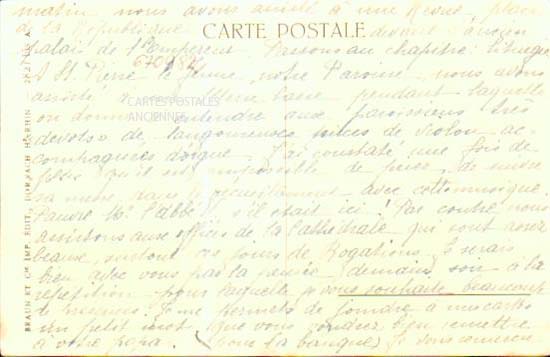 matin, nous avons assisté à une Revue, place
de la République
CARTE POSTALE
devant l'ancien
palais de l'Empereur. Passons au chapitre: liturgie
670984
A St. Pierre le Jeune, notre Paroisse, nous avons
assisté à Messe basse, pendant laquelle
CARTES POSTALES
ANCIENNES
on donne entendre aux paroissiens très
dévots de langoureuses de violon, ac-
compagnées d'orgue. J'ai constaté une fois de
plus qu'il est impossible de prier, de suivre
sa messe dans le recueillement avec cette musique
Pauvre Mr l'abbé s'il était ici! Par contre, nous
assistons aux offices de la Cathédrale qui sont assez
beaux, surtout ces jours de Rogations. Je serais
bien avec vous par la pensée demain soir à la
répétition pour laquelle je vous souhaite beaucoup
de Je me permets de joindre à ma carte
un petit mot que vous voudrez bien remettre
à votre papa. (pour la banque) Je vous remercie
BRAUN ET Cie IMP. ÉDIT. DORNACH HT-RHIN